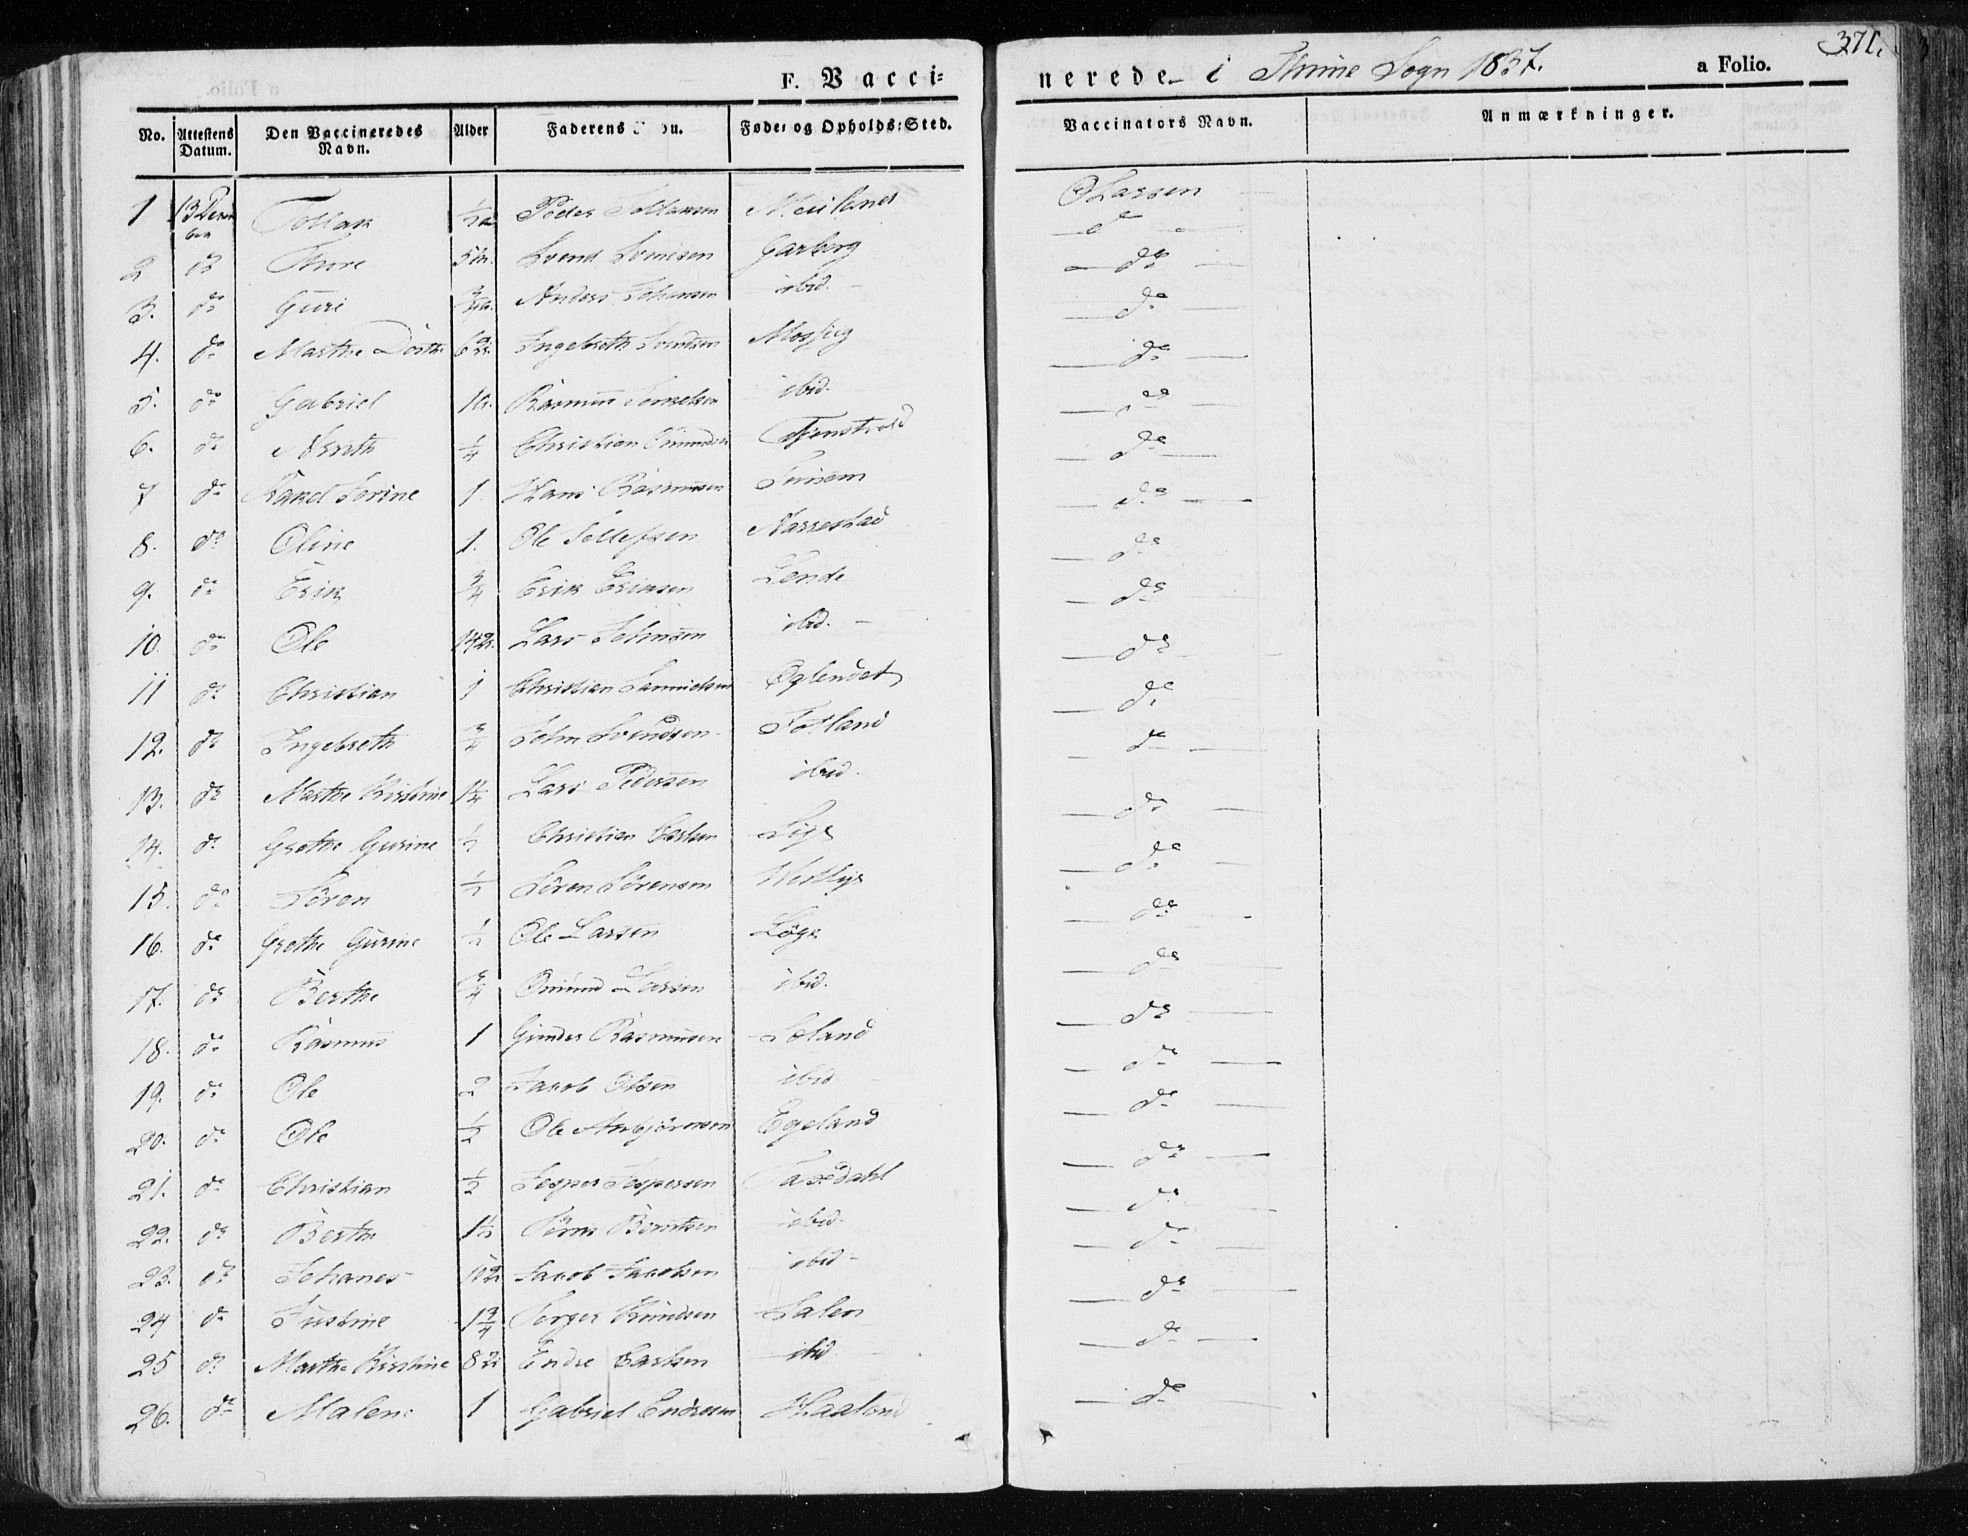 371.
F. Vacci=
nerede i Thime Sogn 1837.
a Folio.
No. Attestens Datum. Den Vaccineredes Navn. Alder Faderens Føde: og Opholds:Sted. Vaccinators Navn. Anmærkninger.
1 13 Decem ber Tollak ½ Peder Tollaksen OLarsen
2 do Thore Svend Svendsen Garborg do
3. do Guri ¾ Anders Johansen ibid. do
4. do Marthe Dorthe Ingebreth Svendsen Mossige do
5. do Gabriel Rasmus ibid. do
6. do ¼ Christian do
7 do Rakel Serine 1. Hans Rasmussen do
8. do Oline 1. Ole Tollefsen Narrestad do
9. do Erik ¾ Erik Eriksen Lende do
10. do Ole Lars ibid. do
11 do Christian 1 Christian Samuelsen Oglendet do
12. do Ingebreth ¾ John Svendsen Fotland do
13. do Marthe Kirstine 1¼ Lars Pedersen ibid. do
14. do Grethe Gurine ½ Christian Lye do
15. do Søren ½ Søren Sørensen Westlye do
16. do Grethe Gurine ½ Ole Larsen Løge do
17. do Berthe ¾ Omund Larsen ibid. do
18. do Rasmus 1 Gunder Rasmussen do
19. do Ole 2 Jacob Olsen ibid do
20. do Ole ½ Ole Asbjørnsen Egeland do
21. do Christian ½ Jesper Jespersen Taxedahl do
22. do Berthe 1½ Berntsen ibid. do
23. do Johanes Jacob Jacobsen ibid do
24 do Justine 1¾ Torger Knudsen do
25 do Marthe Kirstine Endre ibid do
26. do Malene 1 Gabriel Endresen Haaland do